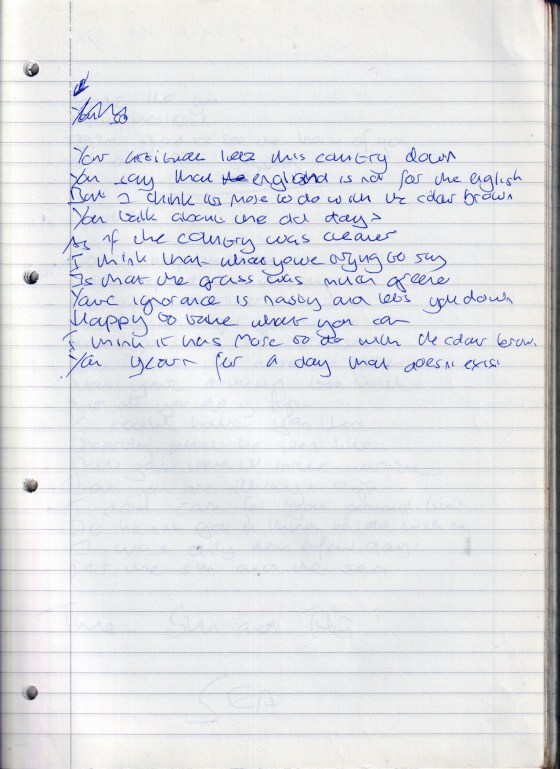 Your attitude lets this country down
You say that the england is not for the english
But I think its more to do with the colour brown
You talk about the old days
As if the country was cleaner
I think that what youre trying to say
Is that the grass was much greener
Your ignorance is nasty and lets you down
Happy to take what you can
I think it has more to do with the colour brown
You yearn for a day that doesnt exist